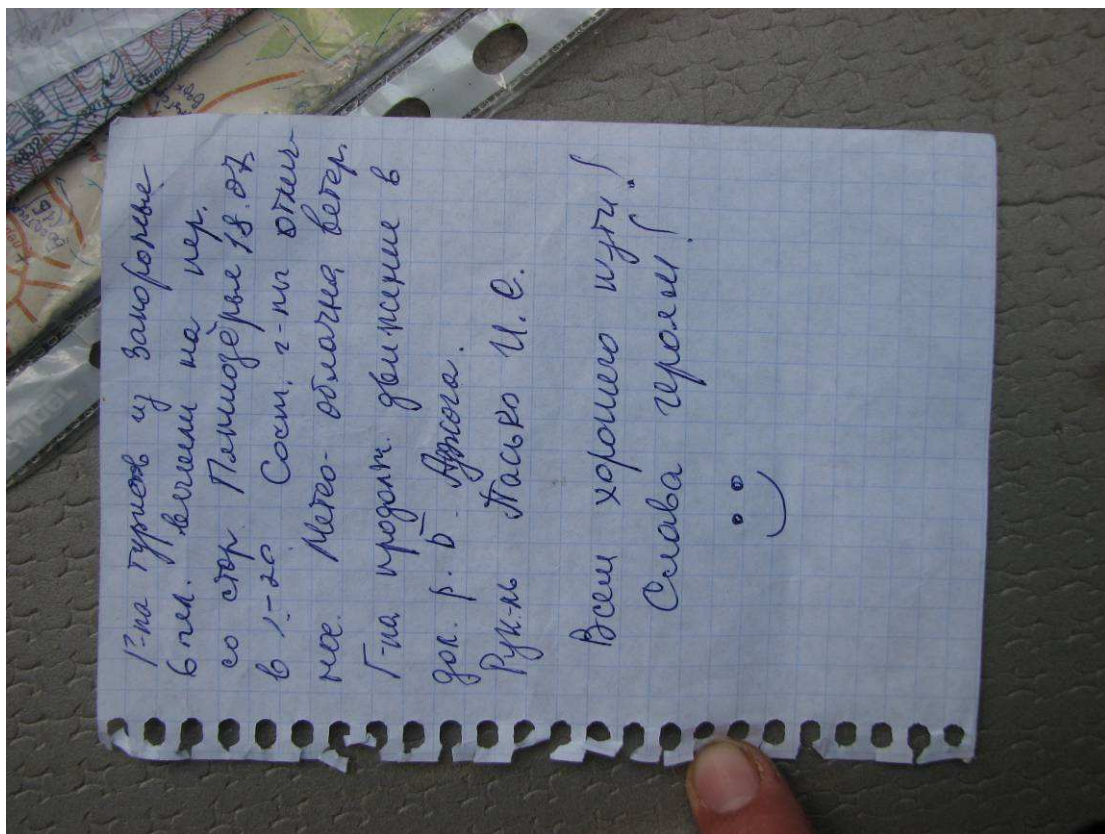 Г-па туристов из Запорожье
6 чел. вышли на пер.
со стор. Пятиозёрье 18.07
в -20 Сост. г-пы отлич-
ное. Метео- облачна, ветер.
Г-па продолж. движение в
дол. р. Б.
Рук-ль Пасько И.С.
Всем хорошего пути!
Слава героям!